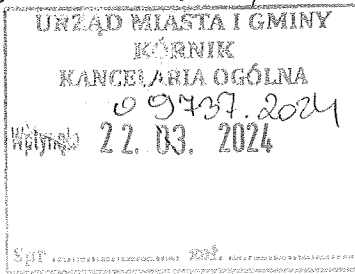 URZĄD MIASTA I GMINY
KÓRNIK
KANCELARIA OGÓLNA
09737.2024
Wpłynęło 22. 03. 2024
Spr. ........................ zał. ........................